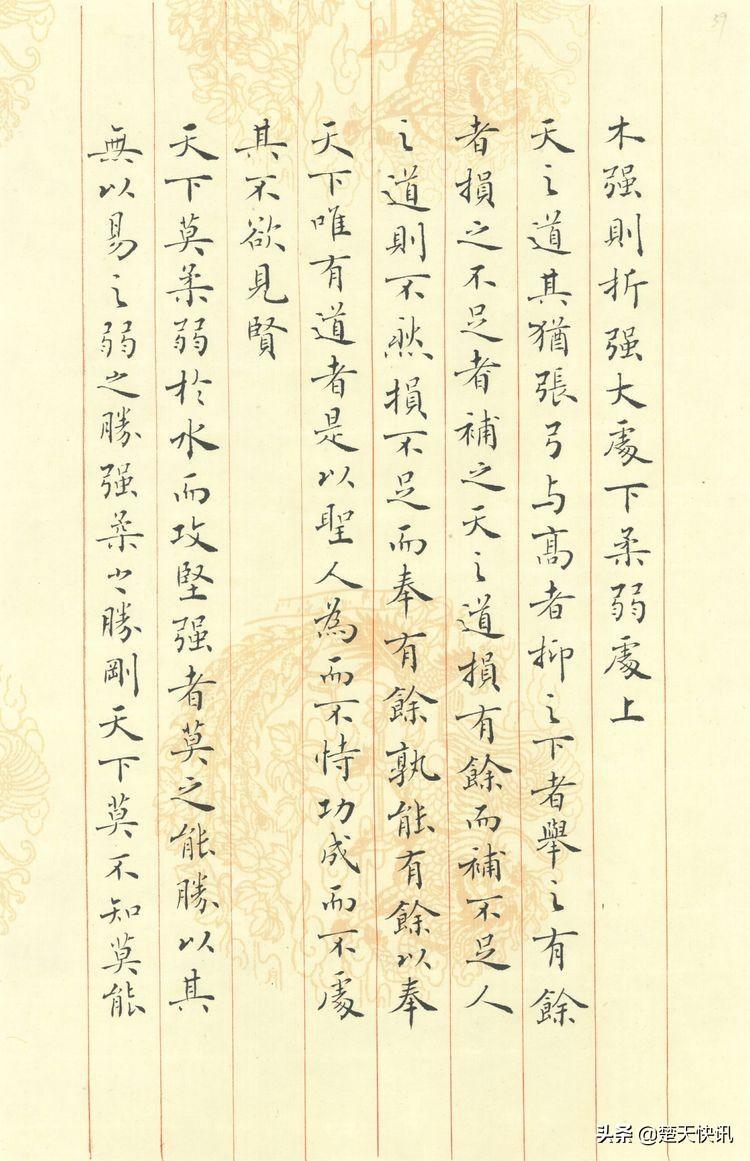 木强則折强大處下柔弱處上
天之道其猶張弓与髙者抑之下者舉之有餘
者損之不足者補之天之道損有餘而補不足人
之道則不然損不足而奉有餘孰能有餘以奉
天下唯有道者是以聖人為而不恃功成而不處
其不欲見賢
天下莫柔弱於水而攻堅强者莫之能勝以其
無以易之弱之勝强柔之勝剛天下莫不知莫能
39
头条 @楚天快讯